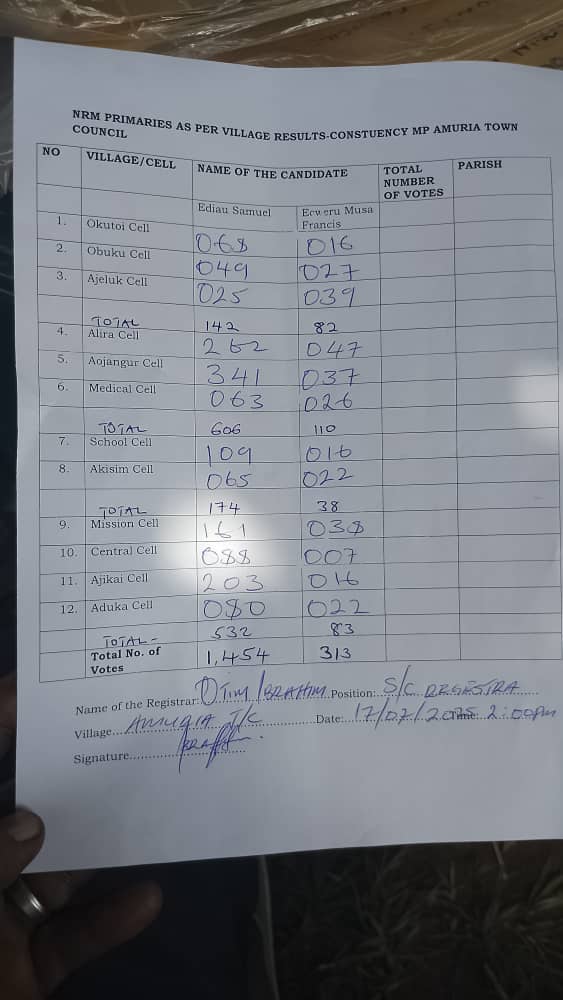 NRM PRIMARIES AS PER VILLAGE RESULTS-CONSTUENCY MP AMURIA TOWN
COUNCIL
NO VILLAGE/CELL NAME OF THE CANDIDATE TOTAL NUMBER OF VOTES PARISH
Ediau Samuel Ecweru Musa Francis
1. Okutoi Cell 068 016
2. Obuku Cell 049 027
3. Ajeluk Cell 025 039
TOTAL 142 82
4. Alira Cell 262 047
5. Aojangur Cell 341 037
6. Medical Cell 063 026
TOTAL 606 110
7. School Cell 109 016
8. Akisim Cell 065 022
TOTAL 174 38
9. Mission Cell 161 038
10. Central Cell 088 007
11. Ajikai Cell 203 016
12. Aduka Cell 080 022
TOTAL- 532 83
Total No. of Votes 1,454 313
Name of the Registrar: OTIM IBRAHIM Position: S/C
Village AMURIA T/C Date: 17/07/2025 Time: 2:00pm
Signature